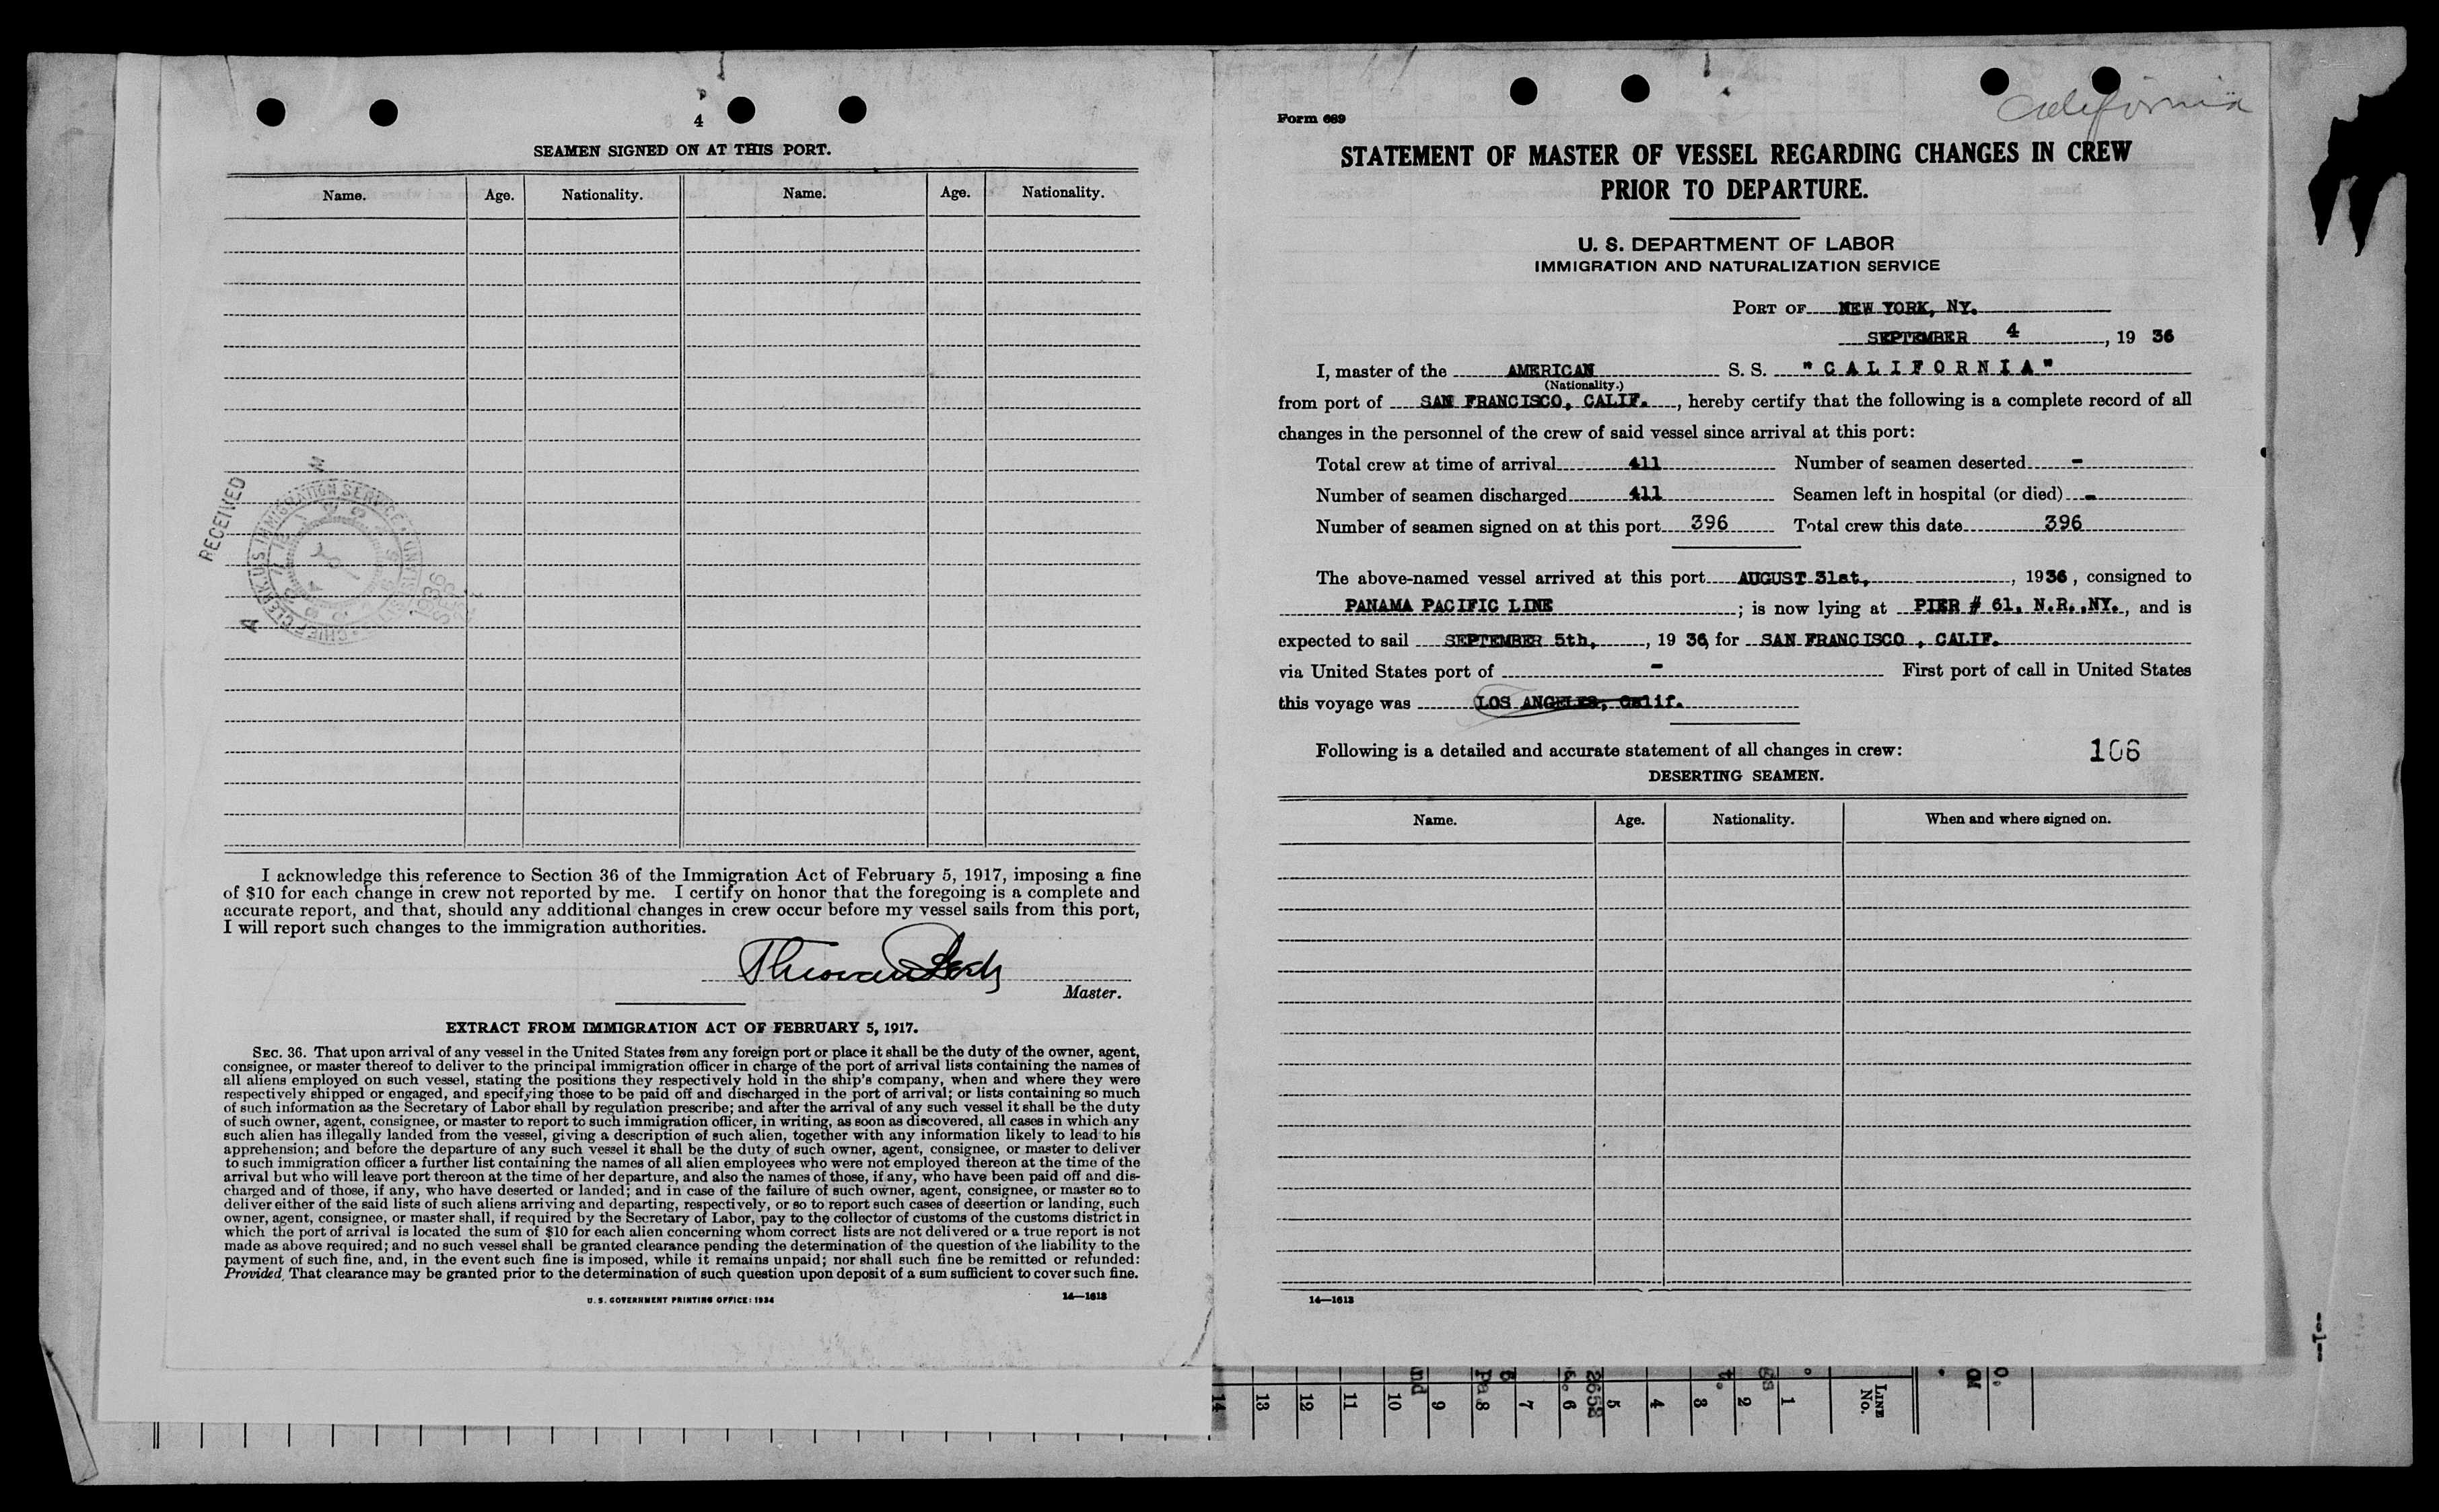 4
SEAMEN SIGNED ON AT THIS PORT.
Name. Age. Nationality. Name. Age. Nationality.
RECEIVED
I acknowledge this reference to Section 36 of the Immigration Act of February 5, 1917, imposing a fine
of $10 for each change in crew not reported by me. I certify on honor that the foregoing is a complete and
accurate report, and that, should any additional changes in crew occur before my vessel sails from this port,
I will report such changes to the immigration authorities.
Master.
EXTRACT FROM IMMIGRATION ACT OF FEBRUARY 5, 1917.
SEC. 36. That upon arrival of any vessel in the United States from any foreign port or place it shall be the duty of the owner, agent,
consignee, or master thereof to deliver to the principal immigration officer in charge of the port of arrival lists containing the names of
all aliens employed on such vessel, stating the positions they respectively hold in the ship's company, when and where they were
respectively shipped or engaged, and specifying those to be paid off and discharged in the port of arrival; or lists containing so much
of such information as the Secretary of Labor shall by regulation prescribe; and after the arrival of any such vessel it shall be the duty
of such owner, agent, consignee, or master to report to such immigration officer, in writing, as soon as discovered, all cases in which any
such alien has illegally landed from the vessel, giving a description of such alien, together with any information likely to lead to his
apprehension; and before the departure of any such vessel it shall be the duty of such owner, agent, consignee, or master to deliver
to such immigration officer a further list containing the names of all alien employees who were not employed thereon at the time of the
arrival but who will leave port thereon at the time of her departure, and also the names of those, if any, who have been paid off and dis-
charged and of those, if any, who have deserted or landed; and in case of the failure of such owner, agent, consignee, or master so to
deliver either of the said lists of such aliens arriving and departing, respectively, or so to report such cases of desertion or landing, such
owner, agent, consignee, or master shall, if required by the Secretary of Labor, pay to the collector of customs of the customs district in
which the port of arrival is located the sum of $10 for each alien concerning whom correct lists are not delivered or a true report is not
made as above required; and no such vessel shall be granted clearance pending the determination of the question of the liability to the
payment of such fine, and, in the event such fine is imposed, while it remains unpaid; nor shall such fine be remitted or refunded:
Provided, That clearance may be granted prior to the determination of such question upon deposit of a sum sufficient to cover such fine.
U. S. GOVERNMENT PRINTING OFFICE: 1934 14—1613
California
Form 689
STATEMENT OF MASTER OF VESSEL REGARDING CHANGES IN CREW
PRIOR TO DEPARTURE.
U. S. DEPARTMENT OF LABOR
IMMIGRATION AND NATURALIZATION SERVICE
PORT OF NEW YORK, NY.
SEPTEMBER 4, 19 36
I, master of the AMERICAN S. S. "CALIFORNIA"
(Nationality.)
from port of SAN FRANCISCO, CALIF., hereby certify that the following is a complete record of all
changes in the personnel of the crew of said vessel since arrival at this port:
Total crew at time of arrival 411 Number of seamen deserted -
Number of seamen discharged 411 Seamen left in hospital (or died) -
Number of seamen signed on at this port 396 Total crew this date 396
The above-named vessel arrived at this port AUGUST 31st, , 1936, consigned to
PANAMA PACIFIC LINE ; is now lying at PIER # 61, N.R.,NY., and is
expected to sail SEPTEMBER 5th, , 19 36, for SAN FRANCISCO , CALIF.
via United States port of - First port of call in United States
this voyage was LOS ANGELES, Calif.
Following is a detailed and accurate statement of all changes in crew: 106
DESERTING SEAMEN.
Name. Age. Nationality. When and where signed on.
14—1613
14 13 12 11 10 9 8 7 6 5 4 3 2 1 LINE No.
2652
--1--